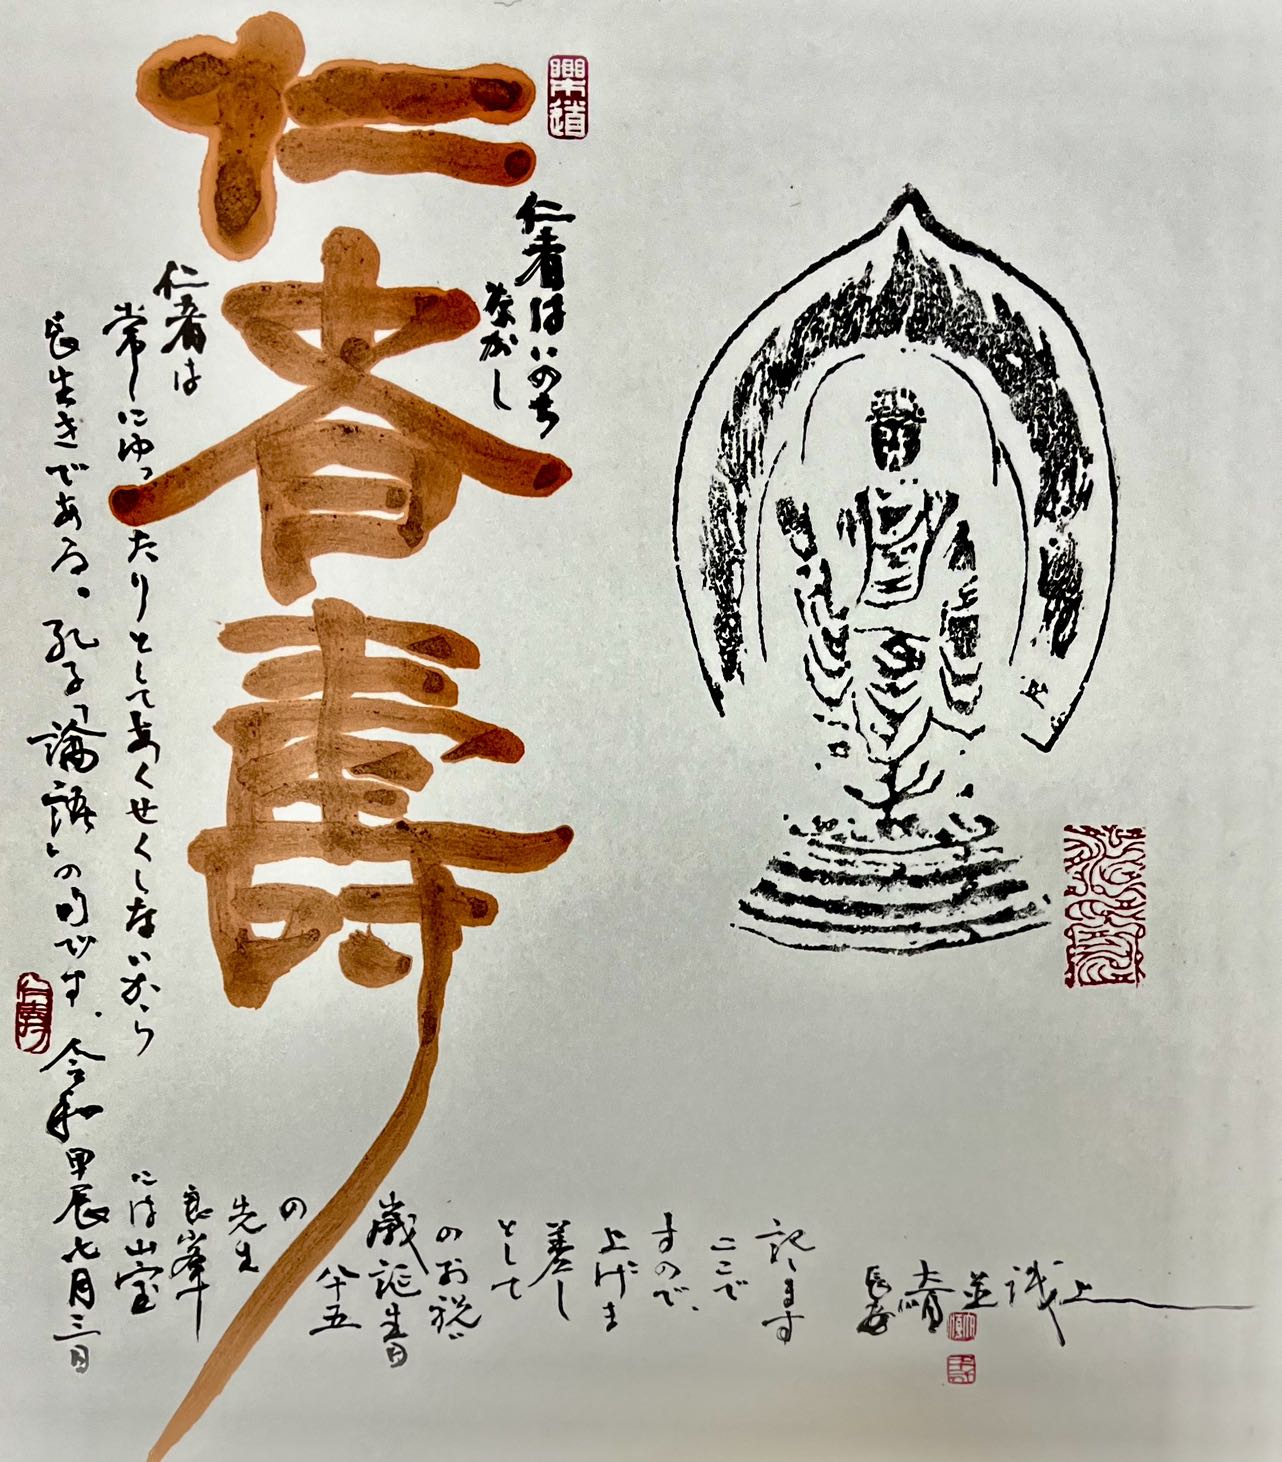 仁者壽
仁者はいのち
ながし
仁者は
常にゆったりとしてあくせくしないから
長生きである。孔子「論語」の句です。令和甲辰七月三日
には山室
良峯
先生
の
八十五
歳誕生日
のお祝い
として
差し
上げま
すので、
ここで
記します
長安
大晴
並識上
樂道
仁壽